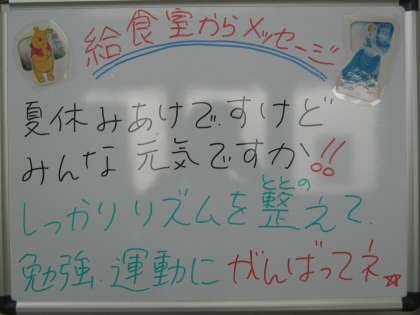 給食室からメッセージ
夏休みあけですけど
みんな元気ですか!!
しっかりリズムを整えて、
ととの
勉強、運動にがんばってネ☆